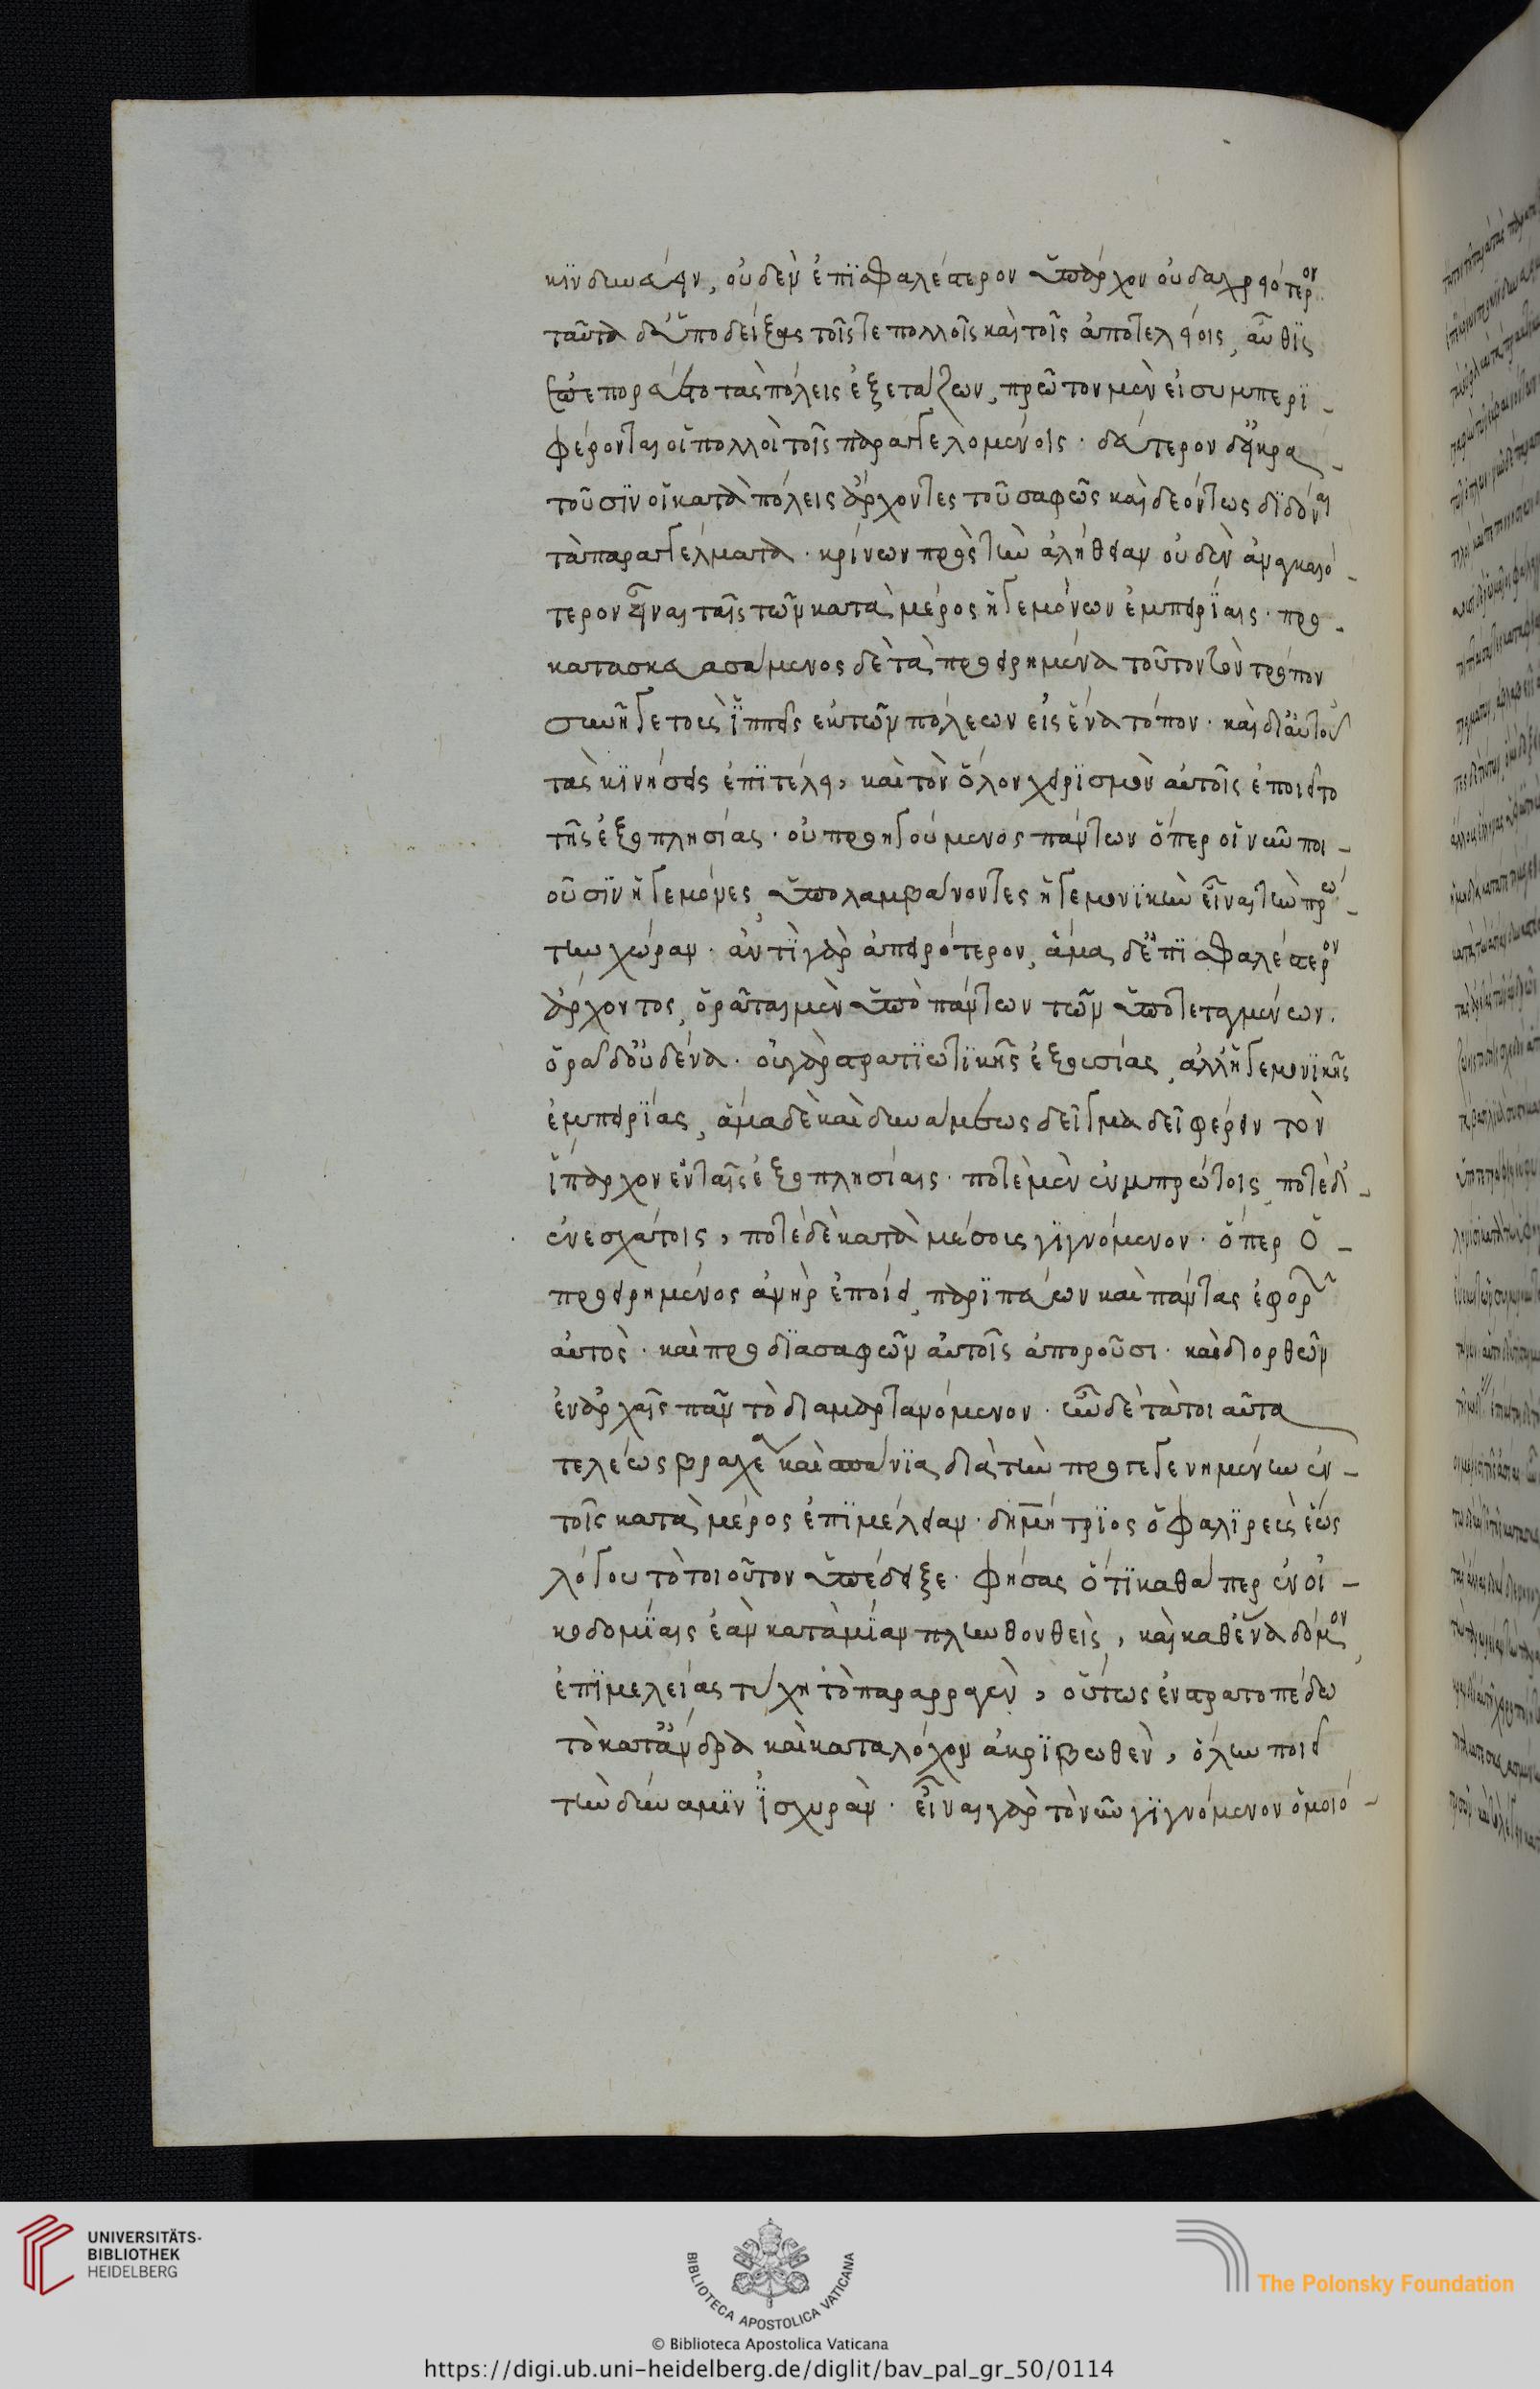 κινδυνεύειν, οὐδὲν ἐπισφαλέστερον ὑπάρχον οὐδ' ἀχρειότερον
ταῦτα δ' ὑποδείξας τοῖς τε πολλοῖς καὶ τοῖς ἀποτελείοις, αὖθις
ἐπεπορεύετο τὰς πόλεις ἐξετάζων, πρῶτον μὲν εἰ συμπερι-
φέρονται οἱ πολλοὶ τοῖς παραγγελομένοις. δεύτερον δ' εἰ κρα-
τοῦσιν οἱ κατὰ πόλεις ἄρχοντες τοῦ σαφῶς καὶ δεόντως διδόναι
τὰ παραγγέλματα. κρίνων πρὸς τὴν ἀλήθειαν οὐδὲν ἀναγκαιό-
τερον εἶναι ταῖς τῶν κατὰ μέρος ἡγεμόνων ἐμπειρίαις. προ-
κατασκευασάμενος δὲ τὰ προειρημένα τοῦτον τὸν τρόπον
συνῆγε τοὺς ἵππεις ἐκ τῶν πόλεων εἰς ἕνα τόπον. καὶ δι' αὑτοῦ
τὰς κινήσεις ἐπιτέλει, καὶ τὸν ὅλον χειρισμὸν αὐτοῖς ἐποιεῖτο
τῆς ἐξοπλησίας. οὐ προηγούμενος πάντων ὅπερ οἱ νῦν ποι-
οῦσιν ἡγεμόνες, ὑπολαμβάνοντες ἡγεμονικὴν εἶναι τὴν πρώ-
την χώραν. ἀντὶ γὰρ ἀπειρότερον, ἅμα δ' ἐπισφαλέστερον
ἄρχοντος, ὁρᾶται μὲν ὑπὸ πάντων τῶν ὑποτεταγμένων.
ὁρᾶ δ' οὐδένα. οὐ γὰρ στρατιωτικῆς ἐξουσίας, ἀλλ' ἡγεμονικῆς
ἐμπειρίας, ἅμα δὲ καὶ δυνάμεως δεῖγμα δεῖ φέρειν τὸν
ἵππαρχον ἐν ταῖς ἐξοπλησίαις. ποτὲ μὲν ἐν πρώτοις, ποτὲ δ'
ἐν ἐσχάτοις, ποτὲ δὲ κατὰ μέσους γιγνόμενον. ὅπερ ὁ
προειρημένος ἀνὴρ ἐποίει, παριπεύων καὶ πάντας ἐφορῶν
αὐτὸς. καὶ προδιασαφῶν αὐτοῖς ἀποροῦσι. καὶ διορθῶν
ἐν ἀρχαῖς πᾶν τὸ διαμαρτανόμενον. ἦν δὲ τὰ τοιαῦτα
τελέως βραχέα καὶ σπάνια διὰ τὴν προγεγενημένην ἐν
τοῖς κατὰ μέρος ἐπιμέλειαν. δημήτριος ὁ φαλιρεὺς ἕως
λόγου τὸ τοιοῦτον ὑπέδειξε. φήσας ὅτι καθάπερ ἐν οἰ-
κοδομίαις ἐὰν κατὰ μίαν πλινθον θεὶς, καὶ καθ' ἕνα δόμον
ἐπιμελείας τύχη τὸ παραρραγὲν, οὕτως ἐν στρατοπέδω
τὸ κατ' ἄνδρα καὶ κατὰ λόχον ἀκριβωθὲν, ὅλην ποιεῖ
τὴν δύναμιν ἰσχυρὰν. εἶναι γὰρ τὸ νῦν γιγνόμενον ὁμοιό-
UNIVERSITÄTS-
BIBLIOTHEK
HEIDELBERG
BIBLIOTECA APOSTOLICA VATICANA
The Polonsky Foundation
© Biblioteca Apostolica Vaticana
https://digi.ub.uni-heidelberg.de/diglit/bav_pal_gr_50/0114